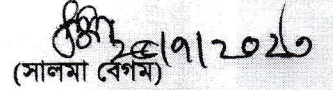 ২৫/৭/২০২৩
(সালমা বেগম)